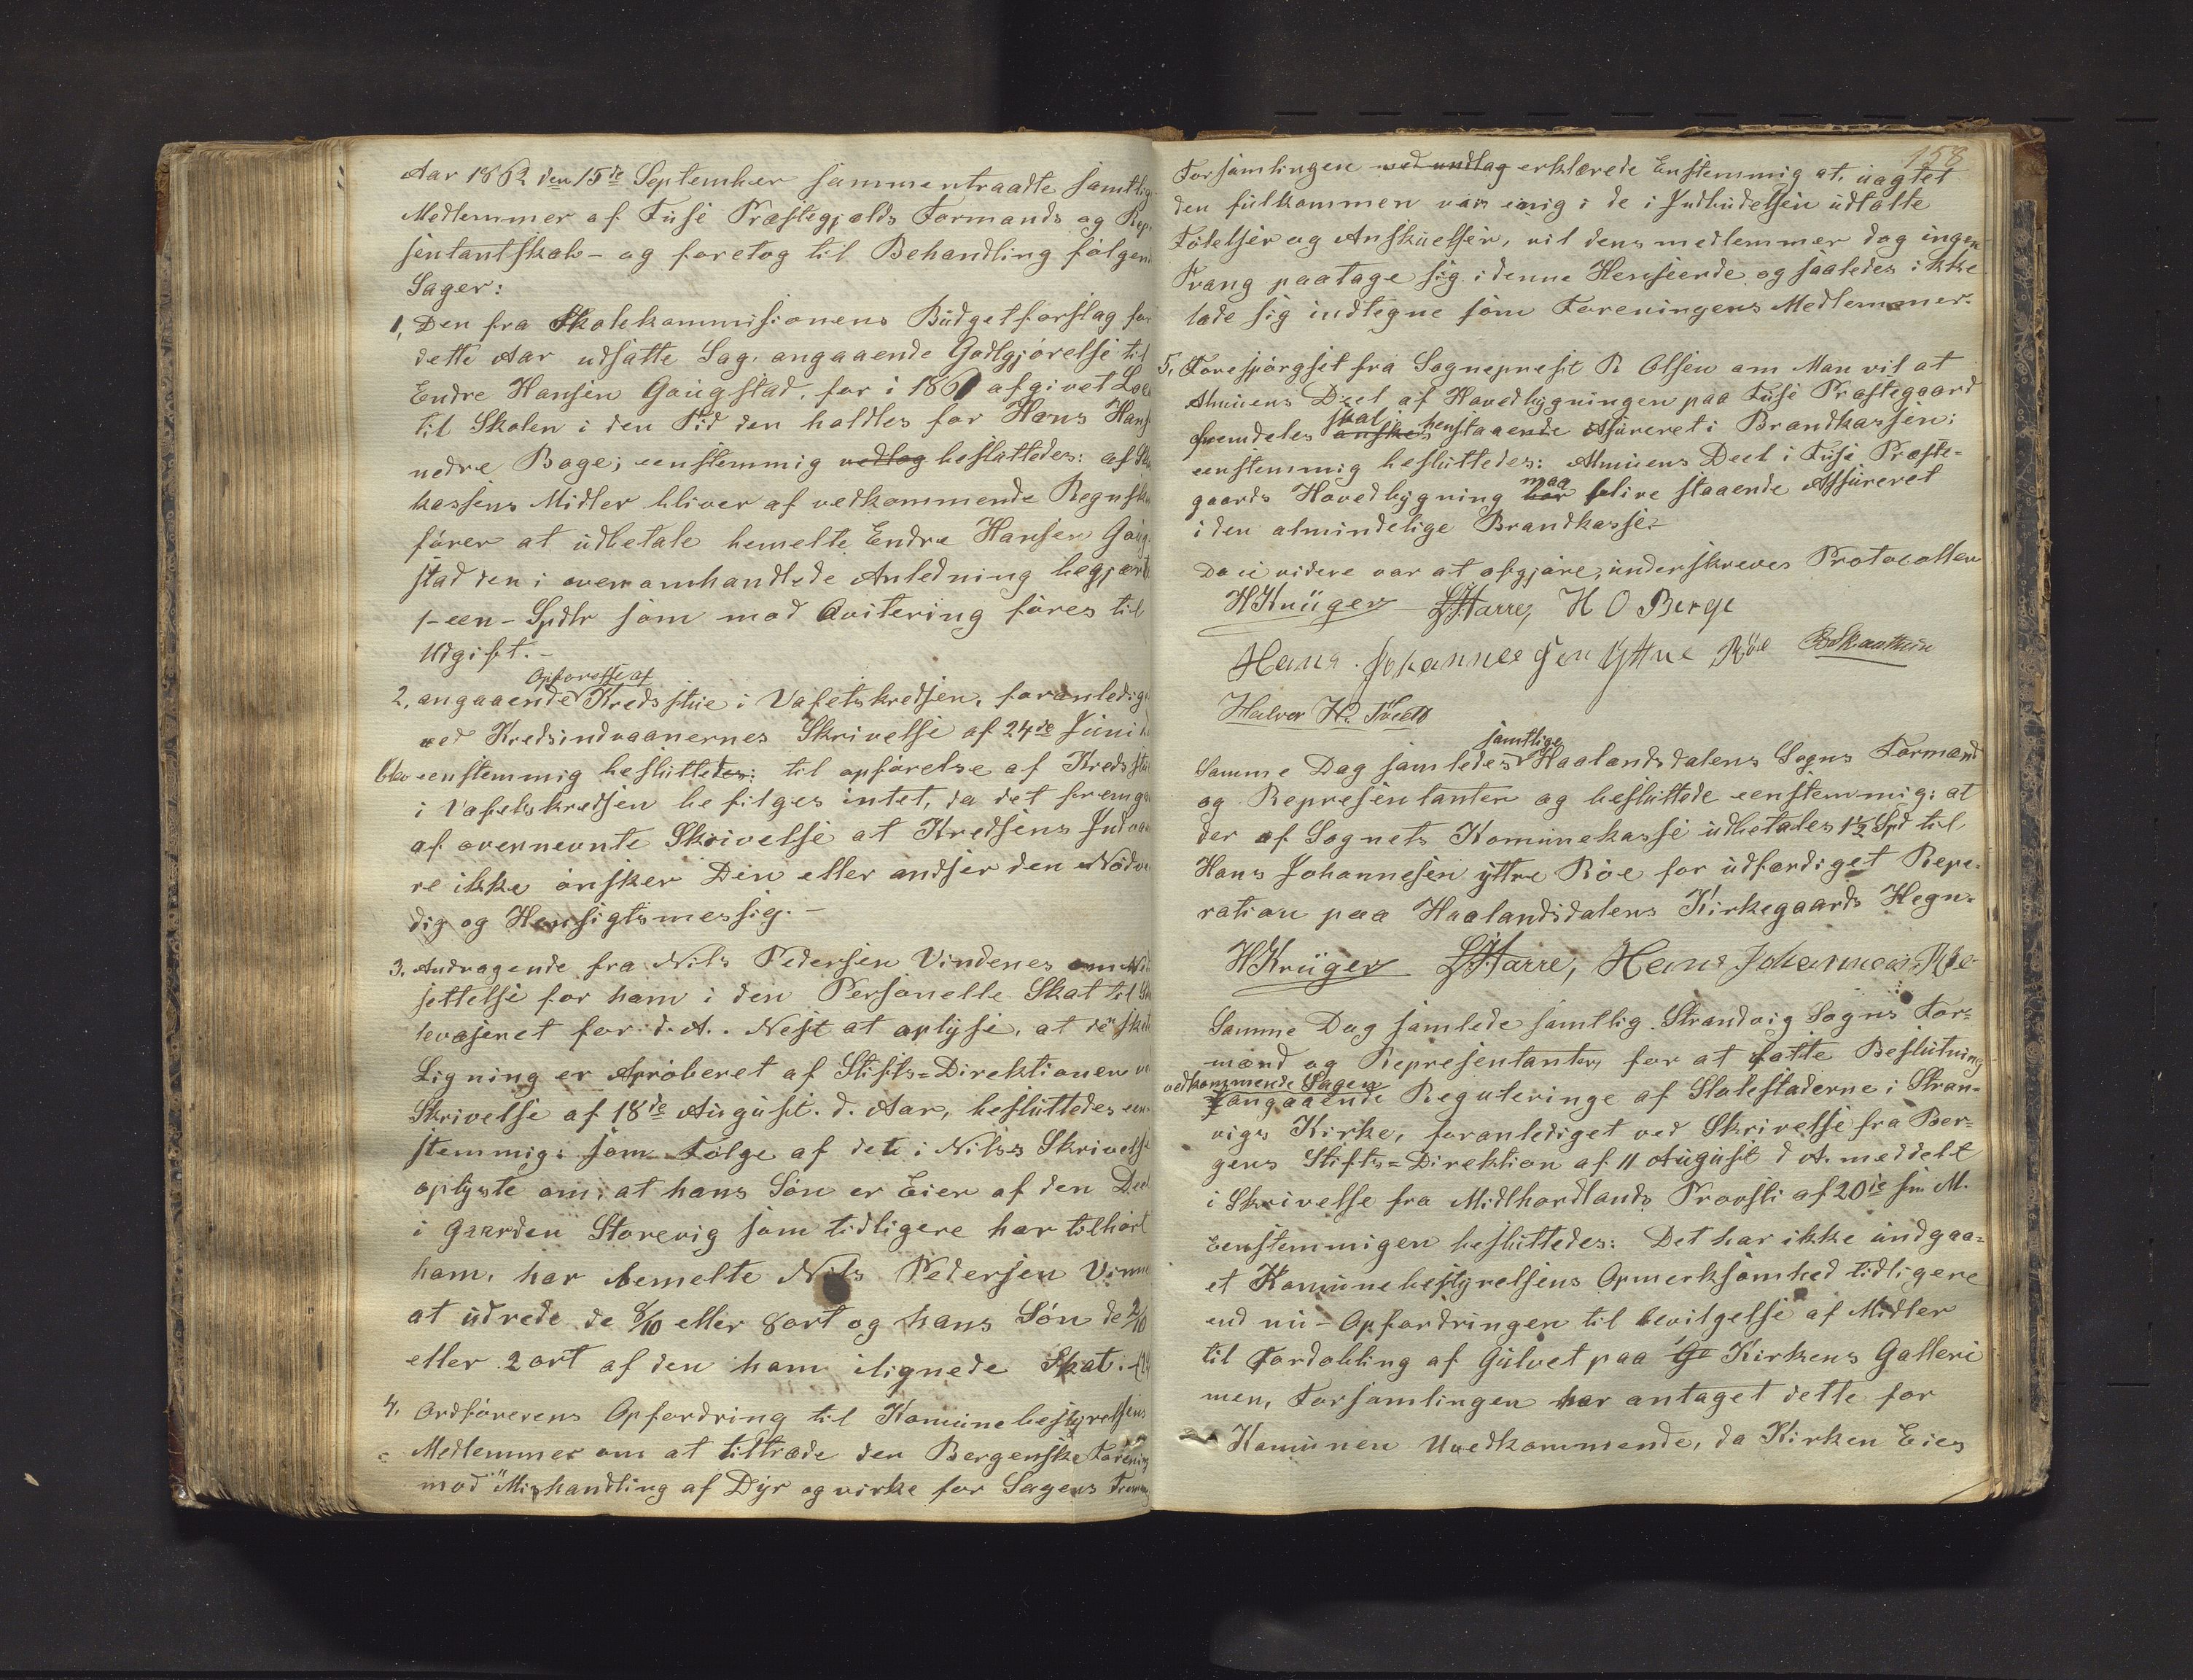 Aar 1862 den 15de September sammentraadte samtlig
Medlemmer af Fuse Præstegjælds Formands og Rep
sentantskab - og foretog til Behandling følgen
Sager:
1, Den fra Skolekommisionens Büdgetforslag for
dette Aar udsatte Sag, angaaende Godtgjørelse til
Endre Hansen Gaugstad, for i 1861 afgivet Loc
til Skolen i den Tid den holdtes for Hans Hans
nedre Bage; eenstemmig vedtog besluttedes: af Sko
kassens Midler bliver af vedkommende Regnska
fører at üdbetale bemelte Endre Hansen Gaug
stad den i ovenomhandlede Anledning begjært
1 - een - Spdlr som mod Qvitering føres til
Udgift. -
Opførelse af
2, angaaende Kredsstue i Vafetskredsen, foranledig
ved Kredsindvaanernes Skrivelse af 24de Juni
blev eenstemmig besluttedes: til opførelse af Kredsstu
i Vafetskredsen befilges intet, da det fremga
af ovennevnte Skrivelse at Kredsens Indvaa
re ikke ønsker Den eller andser den Nødve
dig og Hensigtsmessig. -
3, Andragende fra Nils Pedersen Vindenes om Ned
settelse for ham i den Personelle Skat til Sko
levæsenet for d. A. Nest at oplyse, at de skete
Ligning er Aproberet af Stifts=Direktionen ve
Skrivelse af 18de August d. Aar, besluttedes een
stemmig: som Følge af det i Nilses Skrivelse
oplyste om, at hans Søn er Eier af den Deel
i Gaarden Storevig som tidligere har tilhørt
ham, har bemelte Nils Pedersen Vinne
at udrede de 8/10 eller 8 ort og hans Søn de 2/10
eller 2 ort af den ham ilignede Skat.
4. Ordførerens Opfordring til Komünebestyrelsens
Medlemmer om at tiltræde den Bergenske Forening
mod "Mishandling af Dyr og virke for Sagens Fremme
158
Forsamlingen ved undtag erklærede Enstemmig at, uagtet
den fulkommen var enig i de i Indbudelsen udtalte
Følelser og Anskuelser, vil dens medlemmer dog ingen
Tvang paatage sig i denne Henseende og saaledes ikke
lade sig indtegne som Foreningens Medlemmer.
5, Forespørgsel fra Sognepræst R Olsen om Man vil at
Almuens Deel af Hovedbygningen paa Fuse Præstegaard
skal
fremdeles ønskes henstaaende Asureret i Brandkassen;
eenstemmig besluttedes: Almuens Deel i Fuse Præste=
maa
gaards Hovedbygning bør blive staaende Assureret
i den almindelige Brandkasse.
Da ei videre var at afgjøre, underskreves Protocollen
HKrüger LHarre, H O Berge
Hans Johannesen Yttre Röe
Halvor H. Tveit
samtlige
Samme Dag samledes Haalandsdalens Sogns Formænd
og Representanter og besluttede eenstemmig: at
der af Sognets Komunekasse udbetales 1 1/2 Spd til
Hans Johannesen yttre Röe for udfærdiget Repe=
ration paa Haalandsdalens Kirkegaards Hegn.
HKrüger LHarre, Hans Johannesen Röe
Samme Dag samlede samtlig Strandvig Sogns For=
mænd og Representanter, for at fatte Beslutning
vedkommende Sagen
angaaende Reguleringe af Stolestaderne i Stran=
vigs Kirke, foranlediget ved Skrivelse fra Ber=
gens Stifts=Direktion af 11 August d A. meddelt
i Skrivelse fra Midthordlands Provsti af 20de s. M.
Eenstemmigen besluttedes: Det har ikke undgaa=
et Komunebestyrelsens Opmerksomhed tidligere
end nu - Opfordringen til bevilgelse af Midler
til Fordobling af Gulvet paa Ga Kirkens Galleri
men, Forsamlingen har antaget dette for
Komunen Uvedkommende, da Kirken Eies